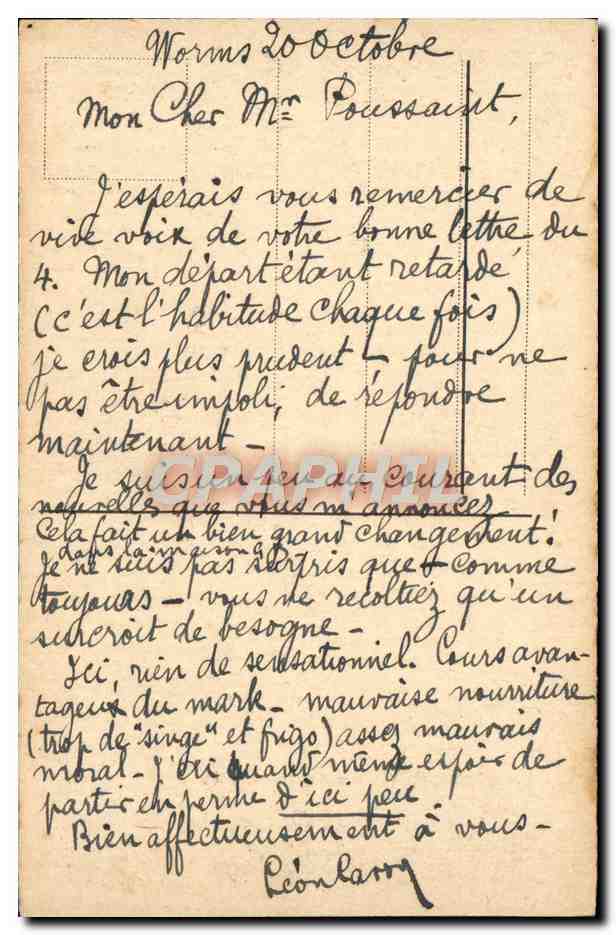 Worms 20 octobre
Mon Cher Mr Poussaint,
J'espérais vous remercier de
vive voix de votre bonne lettre du
4. Mon départ étant retardé
(c'est l'habitude chaque fois)
je crois plus prudent - pour ne
pas être impoli, de répondre
maintenant -
Je suis un peu au courant des
nouvelles que vous m'annoncez
Cela fait un bien grand changement!
dans la maison
Je ne suis pas surpris que - comme
toujours - vous ne recoltiez qu'un
surcroit de besogne -
Ici, rien de sensationnel. Cours avan-
tageux du mark - mauvaise nourriture
(trop de "singe" et frigo) assez mauvais
moral - J'ai quand même espoir de
partir en perme d'ici peu
Bien affectueusement à vous -
Léon
CPAPHIL